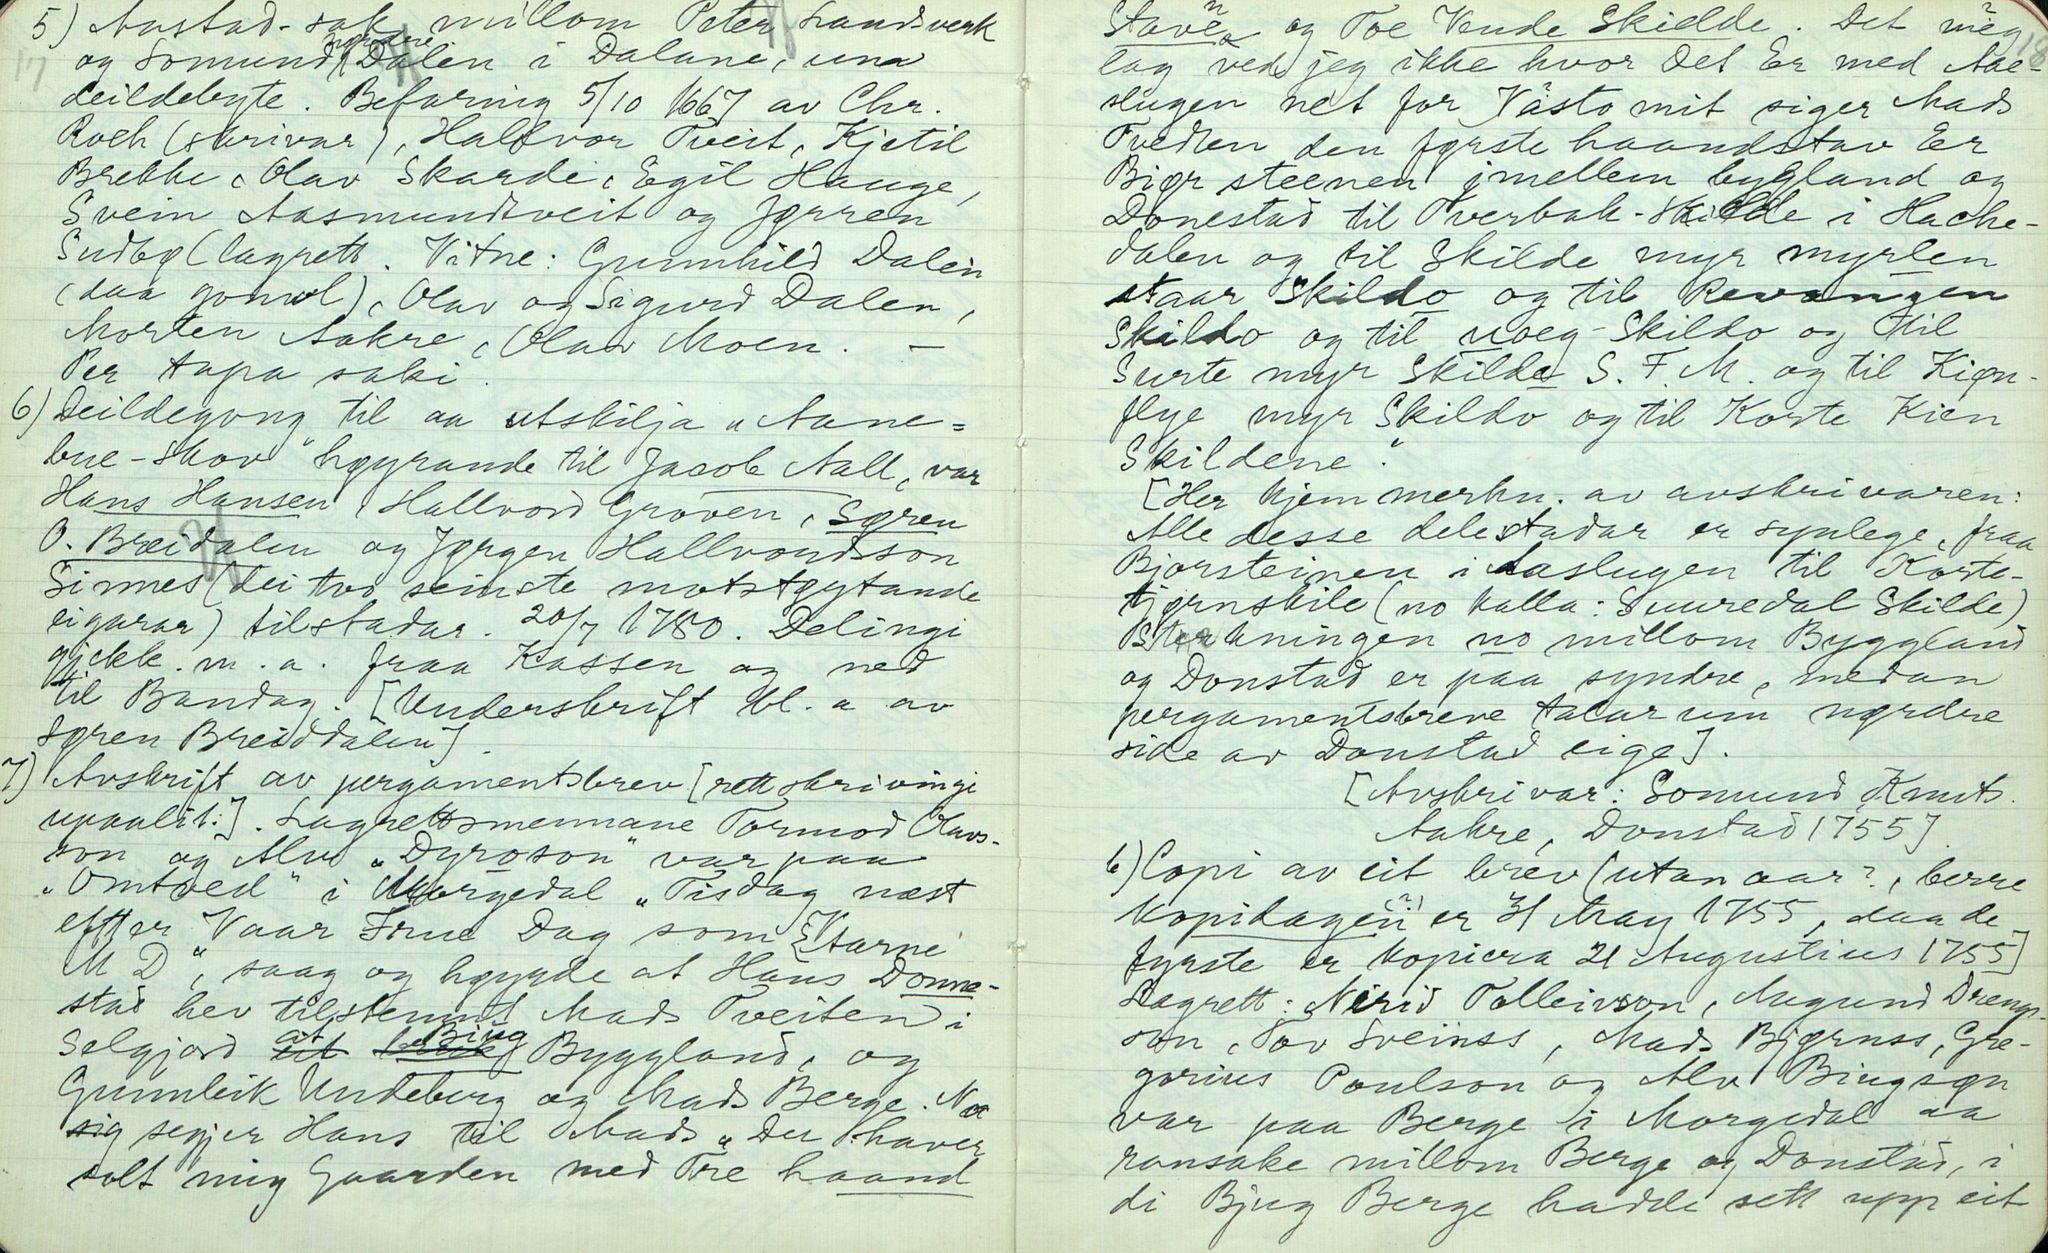 5) Aastad-sak millom Peter Landsverk
og Somund nordre Dalen i Dalane, um
deildebyte. Befaring 5/10 1667 av Chr.
Roeh (skrivar), Hallvor Tveit, Kjetil
Brekke, Olav Skardi, Egil Hauge,
Svein Aasmundtveit og Jørren
Sudbø (lagrett. Vitne: Gunnhild Dalen
(daa gomol), Olav og Sigurd Dalen,
Morten Aakre, Olav Moen. –
Per tapa saki.
6) Deildegong til aa utskilja "Aane=
bue-Skov" høyrande til Jacob Aall, var
Hans Hansen, Hallvord Groven, Søren
O. Breidalen og Jørgen Hallvordsson
Sinnes (dei tvo seinste motstøytande
eigarar) tilstadar. 20/7 1780. Delingi
gjekk m. a. fraa Kassen og ned
til Bandag. [Underskrift bl. a av
Søren Breiddalen].
7) Avskrift av pergamentsbrev [rettskrivingi
upaalit:]. Lagrettsmennane Tormod Olavs-
son og Alv "Dyroson" var paa
"Omtved" i Morgedal "Tisdag næst
efter Vaar Frue Dag som
M D", saag og høyrde at Hans Donne-
stad hev tilstemnt Mads Tveiten i
Selgjord at Biug Byggland, og
Gunnleik Undeberg og Mads Berge. No
sig segjer Hans til Mads "Der haver
solt mig Gaarden med Tre haand
17
Stave og Toe Vende Skielde. Det meg
lag ved jeg ikke hvor Det Er med Aae-
slugen net for Västo mit siger Mads
Tvedten den første haandstav Er
Biør steenen imellem bygland og
Donestad til Tverbak-Skilde i Hacke-
dalen og til Skilde myr myrlen
staar Skildo og til Revongen
Skildo og til uveg-Skildo og til
Surte myr Skilde S. F. M. og til Kiøn-
flye myr Skildo og til Korte Kien
Skildene".
[Her kjem merkn. av avskrivaren:
Alle desse delestadar er synlege, fraa
Bjorsteinen i Aaslugen til Korte-
tjørnskile (no kalla: Suuredal Skilde)
Sterkningen no millom Byggland
og Donstad er paa syndre, medan
pergamentsbreve talar um nørdre
side av Donstad eige].
[Avskrivar: Somund Knuts.
Aakre, Donstad 1755]
6) Copi av eit brev (utan aar?, berre
Kopidagen (?) er 31 May 1755, daa de
fyrste er kopiera 21 Augustius 1755]
Lagrett: Nirid Tolleivson, Augund Dreng-
son, Tov Sveinss, Mads Bjørnss, Gre-
gorius Poulson og Alv Biugsøn
var paa Berge i Morgedal aa
ransake millom Berge og Donstad, i
di Bjug Berge hadde sett upp eit
18